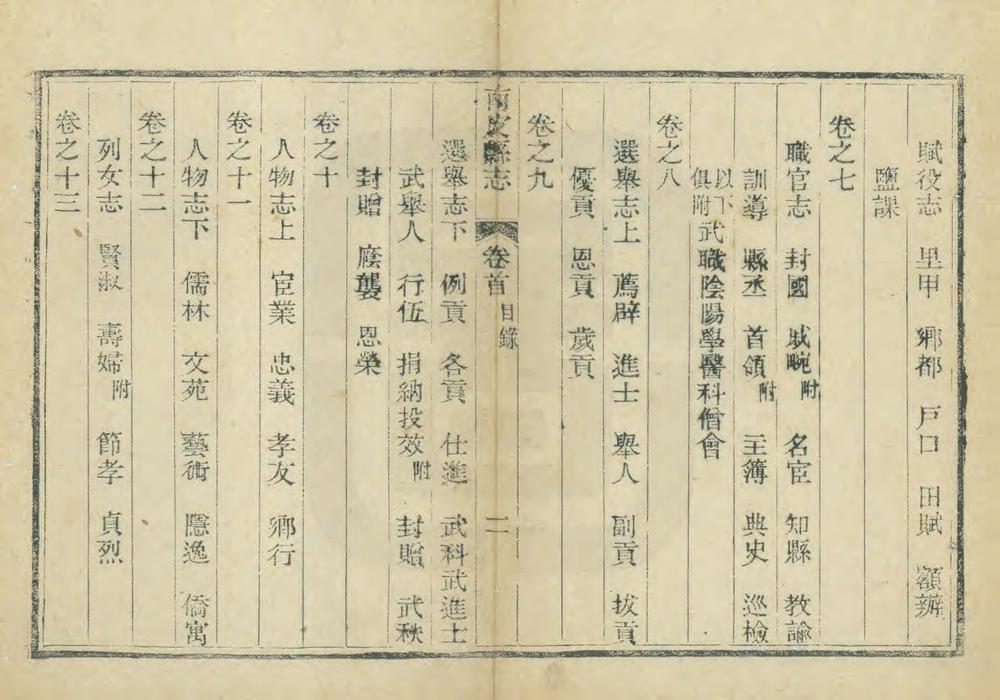 賦役志 里甲 鄉都 戸口 田賦 額辦
鹽課
卷之七
職官志 封國 戚畹附 名宦 知縣 教諭
訓導 縣丞 首領附 主簿 典史 巡檢
以下俱附武職陰陽學醫科僧會
卷之八
選舉志上 薦辟 進士 舉人 副貢 拔貢
優貢 恩貢 歲貢
卷之九
南皮縣志 卷首 目錄 二
選舉志下 例貢 各貢 仕進 武科武進士
武舉人 行伍 捐納投效附 封贈 武秩
封贈 廕襲 恩榮
卷之十
人物志上 宦業 忠義 孝友 鄉行
卷之十一
人物志下 儒林 文苑 藝術 隱逸 僑寓
卷之十二
列女志 賢淑 壽婦附 節孝 貞烈
卷之十三